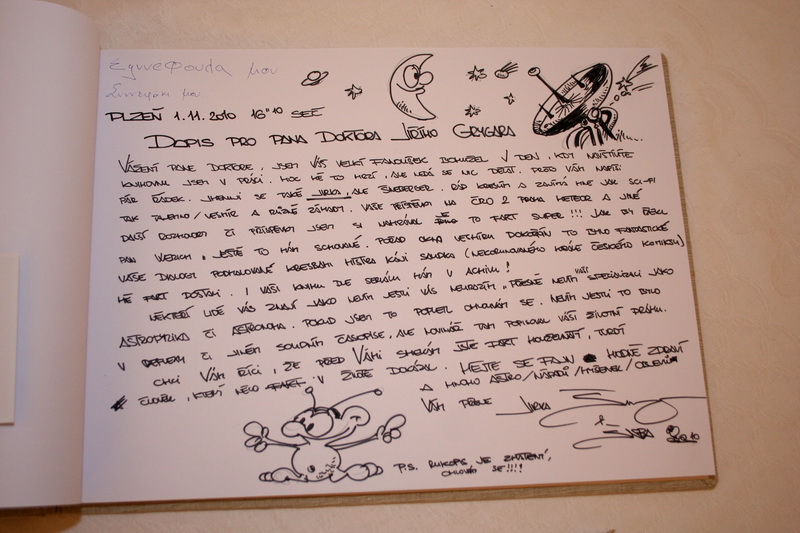 Έγινε φούλα μου
μου
PLZEŇ 1.11.2010 16°10 SEČ
DOPIS PRO PANA DOKTORA JIŘÍHO GRYGARA
VÁŽENÝ PANE DOKTORE, JSEM VÁŠ VELKÝ FANOUŠEK BOHUŽEL V DEN, KDY NAVŠTÍVÍTE
KNIHOVNU JSEM V PRÁCI. MOC MĚ TO MRZÍ, ALE NEDÁ SE NIC DĚLAT. PROTO VÁM NAPÍŠI
PÁR ŘÁDEK. JMENUJI SE TAKÉ JIRKA, ALE ŠNEBERGER. RÁD KRESLÍM A ZAJÍMÁ MNE JAK SCI-FI
TAK TAJEMNO/VESMÍR A RŮZNÉ ZÁHADY. VAŠE NA ČRO 2 PRAHA METEOR A JINÉ
DALŠÍ ROZHOVORY ČI JSEM SI NAHRÁVAL JE TO FAKT SUPER!!! JAK BY ŘEKL
PAN WERICH „JEŠTĚ TO MÁM SCHOVANÉ. POŘAD OKNA VESMÍRU DOKOŘÁN TO BYLO FANTASTICKÉ
VAŠE DIALOGY PODMALOVANÉ KRESBAMI MISTRA KÁJI SAUDKA (NEKORUNOVANÉHO KRÁLE ČESKÉHO KOMIKSU)
MĚ FAKT DOSTALY. I VAŠI KNIHU DLE SERIÁLU MÁM V ACHIVU!
NĚKTEŘÍ LIDÉ VÁS ZNAJÍ JAKO NEVÍM JESTLI VÁS NEURAZÍM „PŘESNĚ NEVÍM VAŠÍ SPECIALIZACI JAKO
ASTROFYZIKA ČI ASTRONOMA. POKUD JSEM TO POPLETL OMLOUVÁM SE. NEVÍM JESTLI TO BYLO
V REFLEXU ČI JINÉM SOUDNÍM ČASOPISE, ALE NOVINÁŘ TAM POPISOVAL VAŠI ŽIVOTNÍ DRÁHU.
CHCI VÁM ŘÍCI, ŽE PŘED VÁMI SMEKÁM JSTE FAKT HOUŽEVNATÝ, TVRDÝ
ČLOVĚK, KTERÝ NĚCO V ŽIVOTĚ DOKÁZAL. MĚJTE SE FAJN HODNĚ ZDRAVÍ
A MNOHO ASTRO/NÁPADŮ/MYŠLENEK/OBJEVŮ
VÁM PŘEJE JIRKA
P.S. RUKOPIS JE ZMATENÝ,
OMLOUVÁM SE!!!!